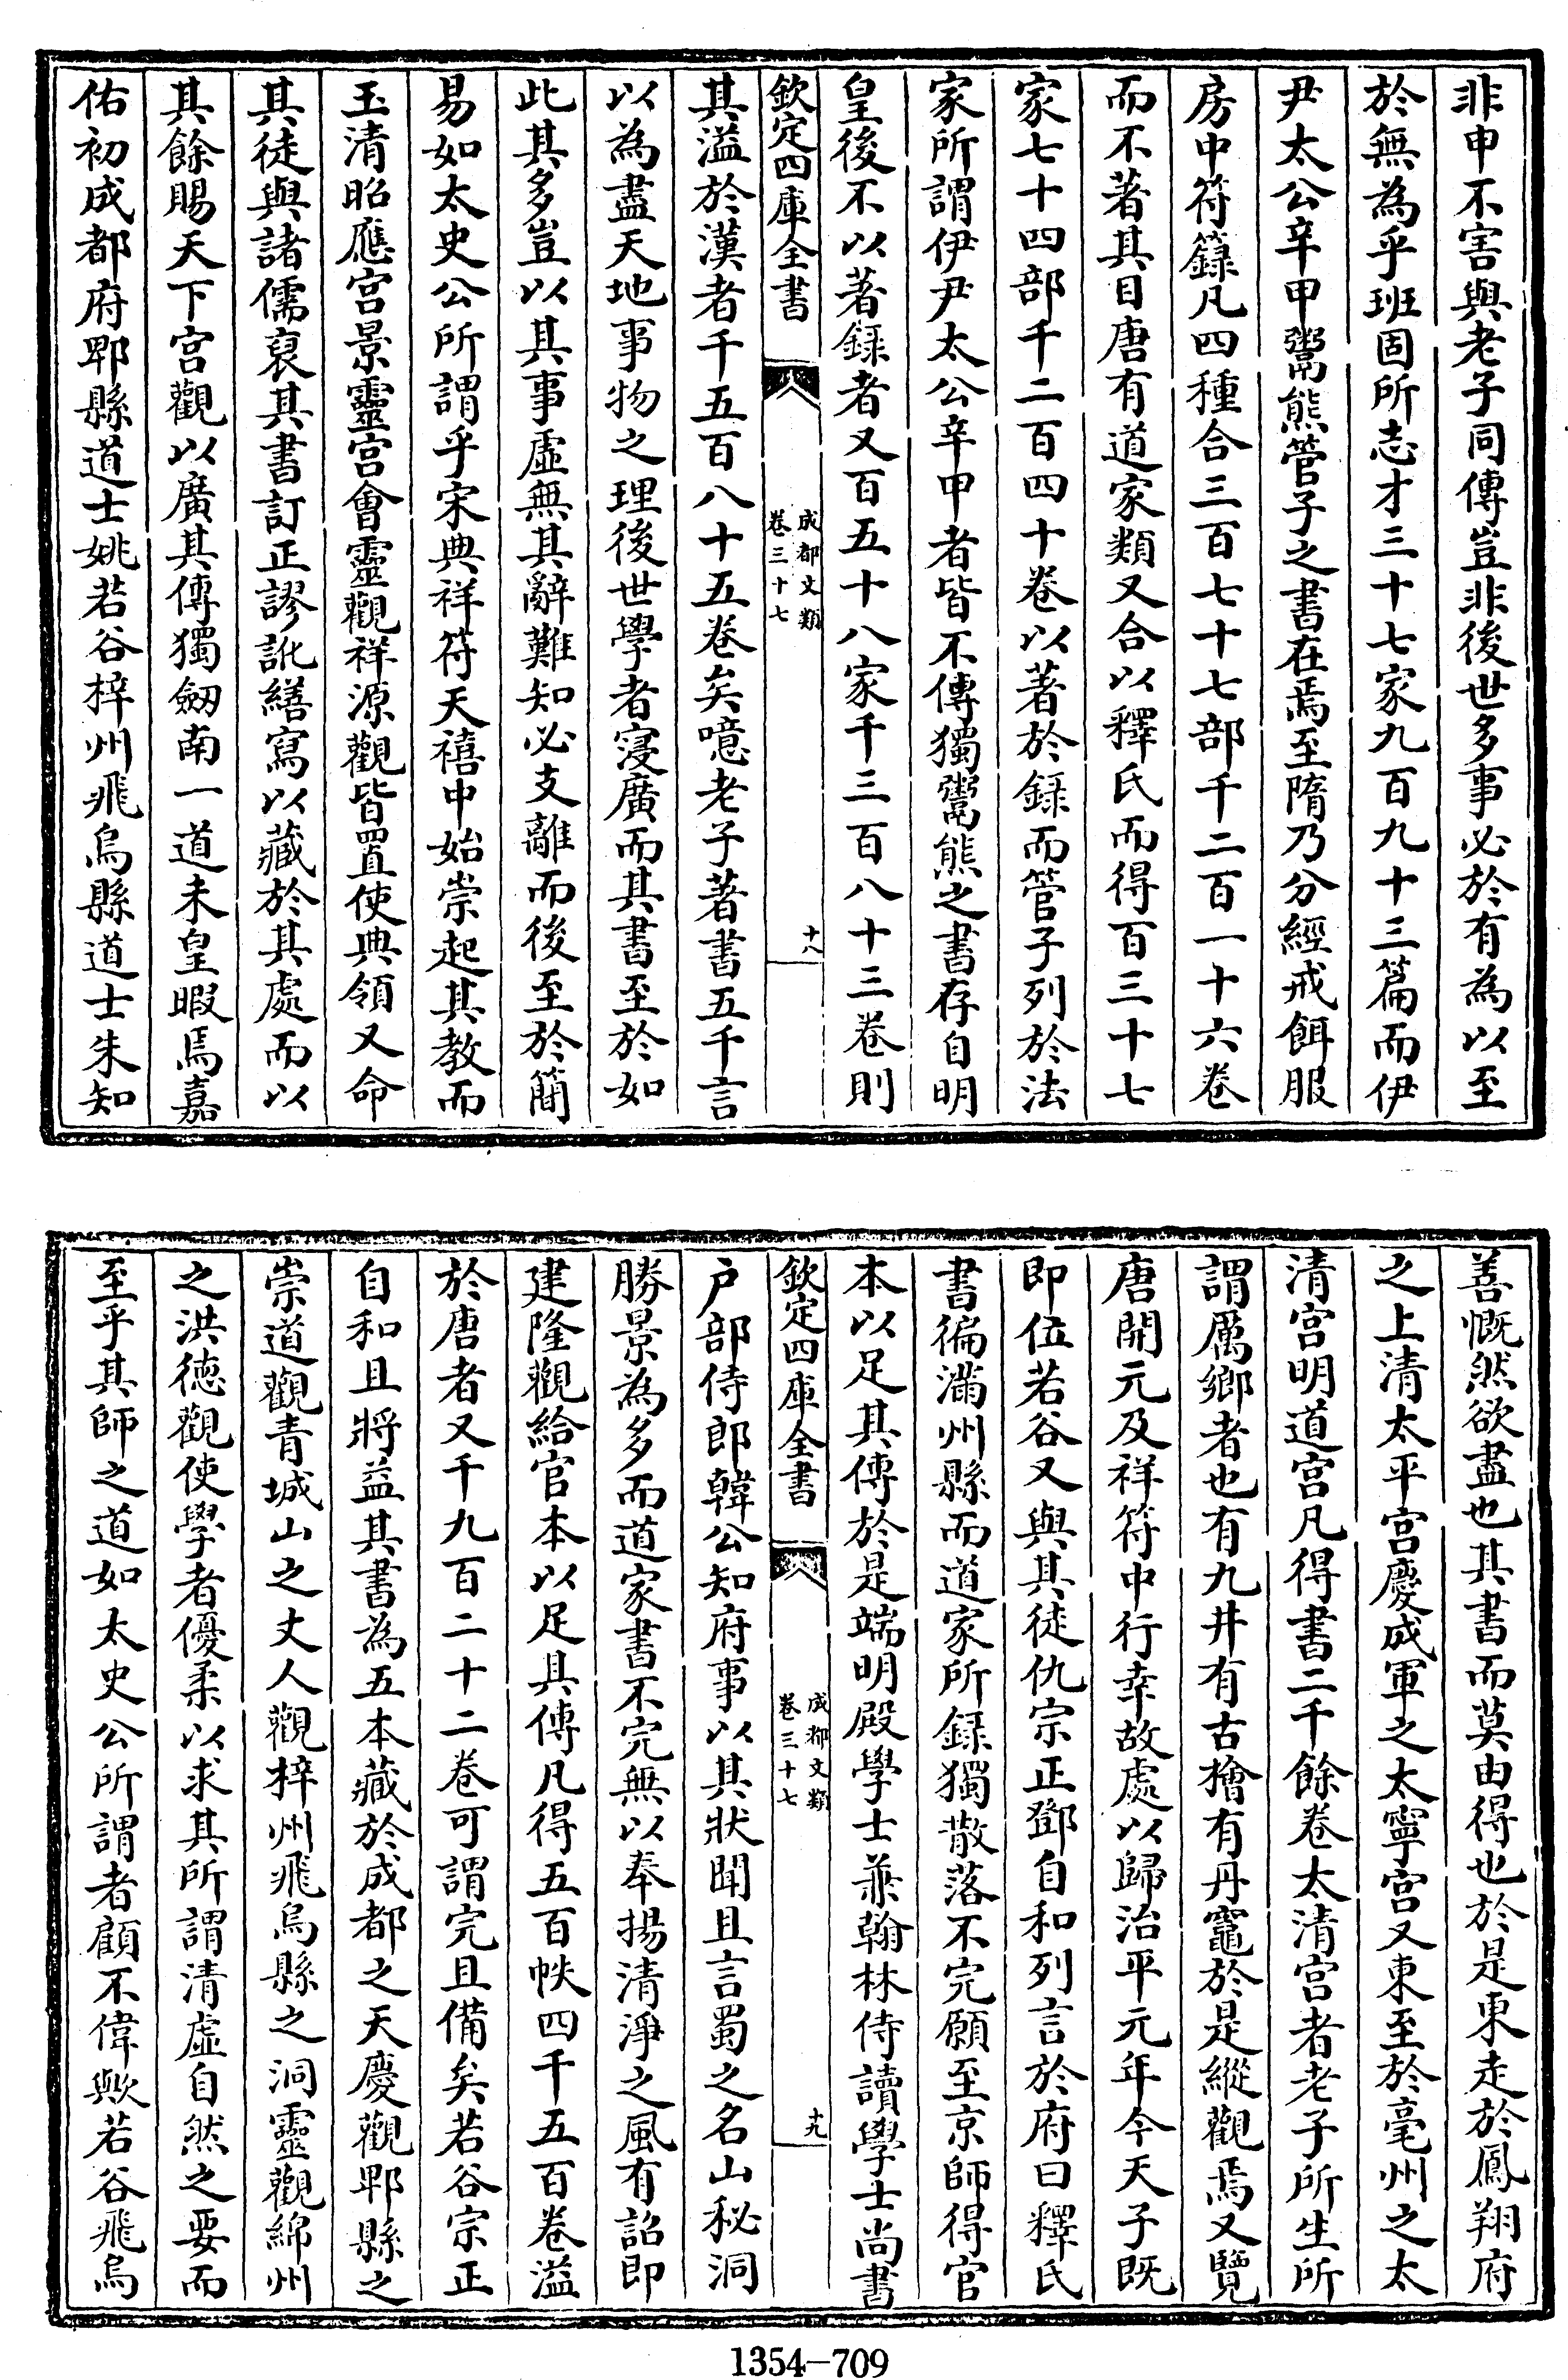 非申不害與老子同傳豈非後世多事必於有為以至
於無為乎班固所志才三十七家九百九十三篇而伊
尹太公辛甲鬻熊管子之書在焉至隋乃分經戒餌服
房中符籙凡四種合三百七十七部千二百一十六卷
而不著其目唐有道家類又合以釋氏而得百三十七
家七十四部千二百四十卷以著於録而管子列於法
家所謂伊尹太公辛甲者皆不傳獨鬻熊之書存自明
皇後不以著録者又百五十八家千三百八十三卷則
欽定四庫全書
成都文類
卷三十七
十八
其溢於漢者千五百八十五卷矣噫老子著書五千言
以為盡天地事物之理後世學者寖廣而其書至於如
此其多豈以其事虛無其辭難知必支離而後至於簡
易如太史公所謂乎宋典祥符天禧中始崇起其教而
玉清昭應宫景靈宫會靈觀祥源觀皆置使典領又命
其徒與諸儒裒其書訂正謬訛繕寫以藏於其處而以
其餘賜天下宫觀以廣其傳獨劔南一道未皇暇焉嘉
佑初成都府郫縣道士姚若谷梓州飛烏縣道士朱知
善慨然欲盡也其書而莫由得也於是東走於鳳翔府
之上清太平宫慶成軍之太寧宫又東至於亳州之太
清宫明道宫凡得書二千餘卷太清宫者老子所生所
謂厲鄉者也有九井有古檜有丹竈於是縱觀焉又覽
唐開元及祥符中行幸故處以歸治平元年今天子既
即位若谷又與其徒仇宗正鄧自和列言於府曰釋氏
書徧滿州縣而道家所録獨散落不完願至京師得官
本以足其傳於是端明殿學士兼翰林侍讀學士尚書
欽定四庫全書
成都文類
卷三十七
十九
户部侍郎韓公知府事以其狀聞且言蜀之名山秘洞
勝景為多而道家書不完無以奉揚清淨之風有詔即
建隆觀給官本以足其傳凡得五百帙四千五百卷溢
於唐者又千九百二十二卷可謂完且備矣若谷宗正
自和且將益其書為五本藏於成都之天慶觀郫縣之
崇道觀青城山之丈人觀梓州飛烏縣之洞靈觀綿州
之洪徳觀使學者優柔以求其所謂清虛自然之要而
至乎其師之道如太史公所謂者顧不偉歟若谷飛烏
1354—709